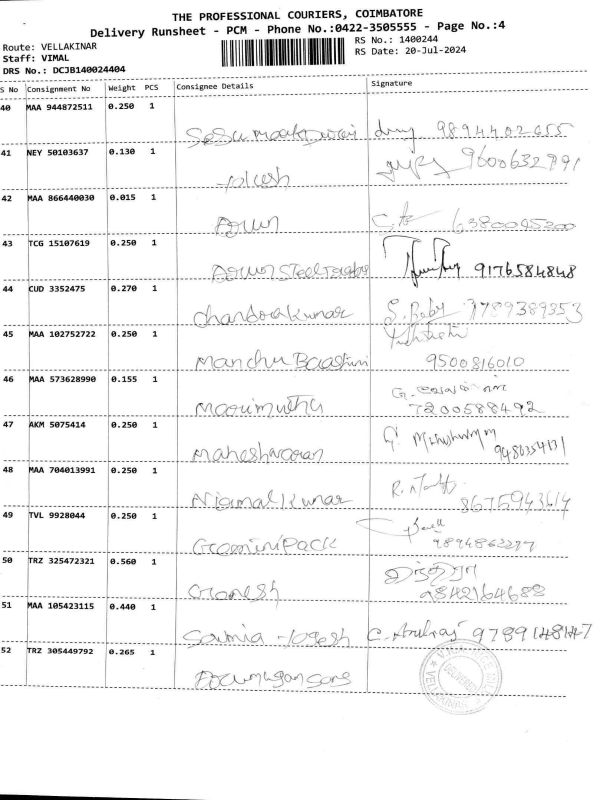 THE PROFESSIONAL COURIERS, COIMBATORE
Delivery Runsheet - PCM - Phone No.:0422-3505555 - Page No.:4
Route: VELLAKINAR
RS No.: 1400244
Staff: VIMAL
RS Date: 20-Jul-2024
DRS No.: DCJB140024404
S No Consignment No Weight PCS Consignee Details Signature
40 MAA 944872511 0.250 1
9894402655
41 NEY 50103637 0.130 1
9600632891
42 MAA 866440030 0.015 1
Arun 6380045200
43 TCG 15107619 0.250 1
Arun Steel 9176584848
44 CUD 3352475 0.270 1
Chandrakumar S. Baby 9789389353
45 MAA 102752722 0.250 1
Manchu 9500816010
46 MAA 573628990 0.155 1
Marimuthu 7200588492
47 AKM 5075414 0.250 1
Maheshwaran
48 MAA 704013991 0.250 1
Nirmal Kumar 8675943614
49 TVL 9928044 0.250 1
Gemini Pack
50 TRZ 325472321 0.560 1
Ganesh இந்திரா
9842164688
51 MAA 105423115 0.440 1
C. Arulraj
52 TRZ 305449792 0.265 1